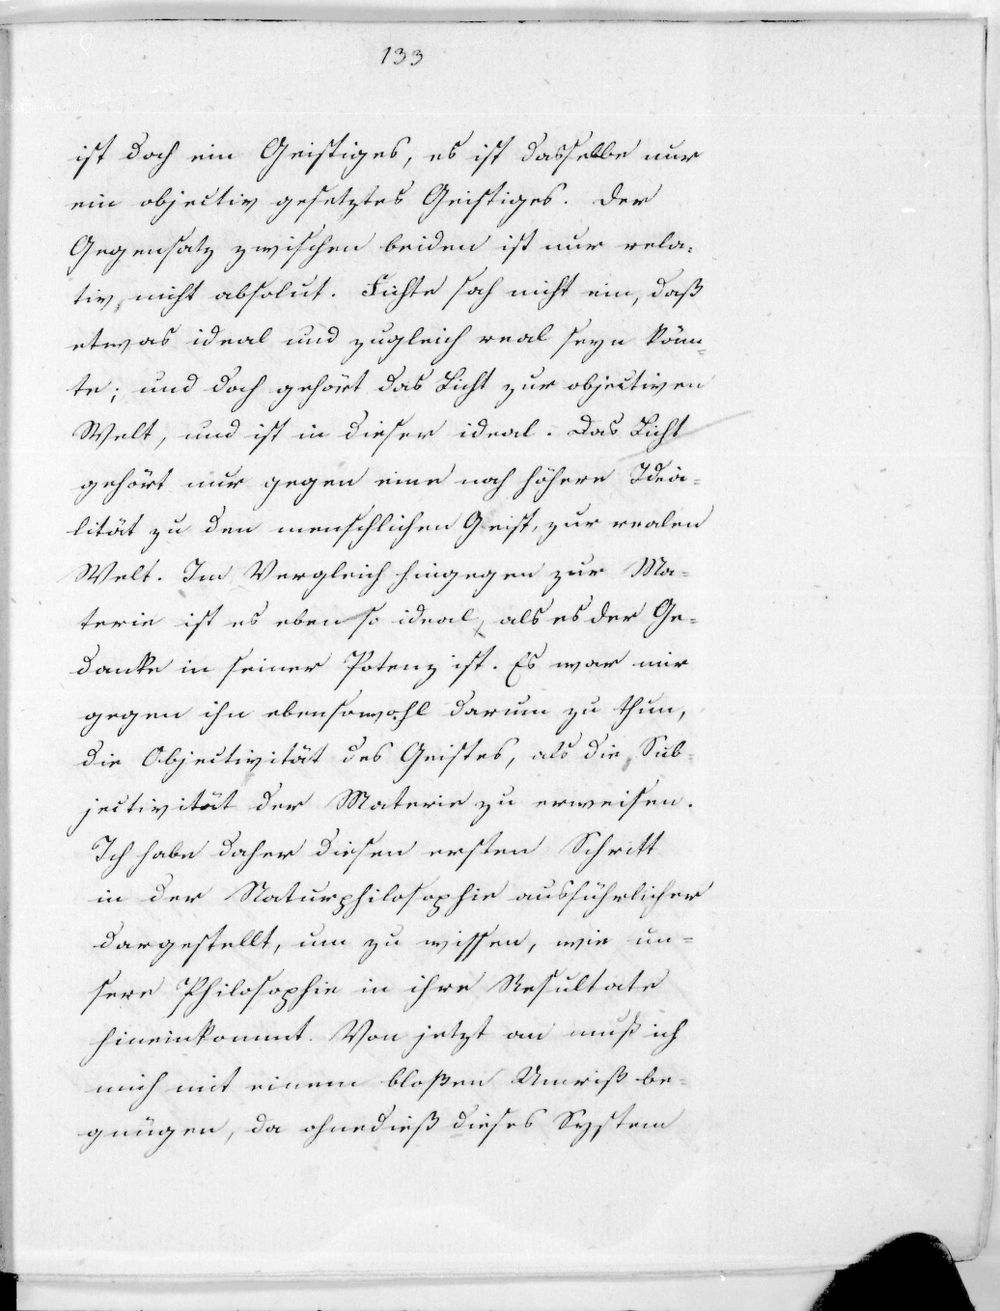 133
ist doch ein Geistiges, es ist dasselbe nur
ein objectiv gesetztes Geistiges. Der
Gegensatz zwischen beiden ist nur rela-
tiv, nicht absolut. Fichte sah nicht ein, daß
etwas ideal und zugleich real seyn könn-
te; und doch gehört das Licht zur objectiven
Welt, und ist in dieser ideal. Das Licht
gehört nur gegen eine noch höhere Idea-
lität zu den menschlichen Geist, zur realen
Welt. Im Vergleich hingegen zur Ma-
terie ist es eben so ideal, als es der Ge-
danke in seiner Potenz ist. Es war mir
gegen ihn ebensowohl darum zu thun,
die Objectivität des Geistes, als die Sub-
jectivität der Materie zu erweisen.
Ich habe daher diesen ersten Schritt
in der Naturphilosophie ausführlicher
dargestellt, um zu wissen, wie un-
sere Philosophie in ihre Resultate
hineinkommt. Von jetzt an muß ich
mich mit einem bloßen Umriß be-
gnügen, da ohnedieß dieses System